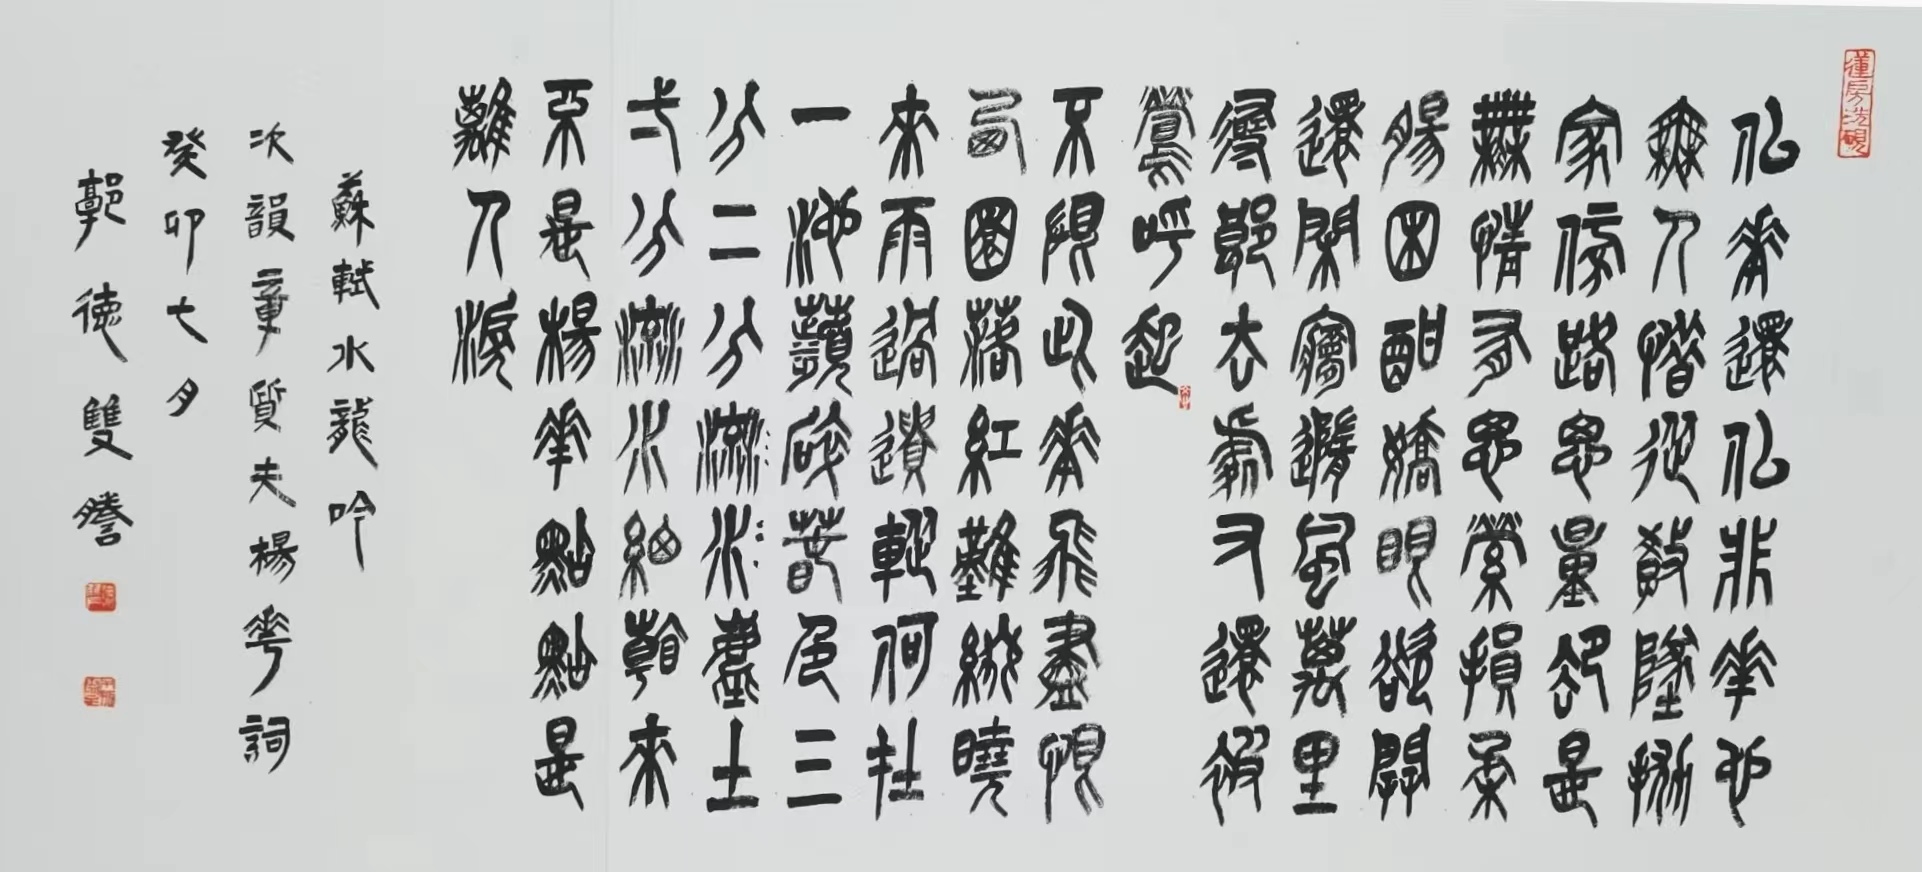 蓮房洗硯
似花還似非花也
無人惜從教墜拋
家傍路思量卻是
無情有思縈損柔
腸困酣嬌眼欲開
還閉夢隨風萬里
尋郎去處又還被
鶯呼起
不恨此花飛盡恨
西園落紅難綴曉
來雨過遺蹤何在
一池萍碎春色三
分二分流水塵土
一分流水細看來
不是楊花點點是
離人淚
蘇軾水龍吟
次韻章質夫楊花詞
癸卯七夕
郭德雙謄